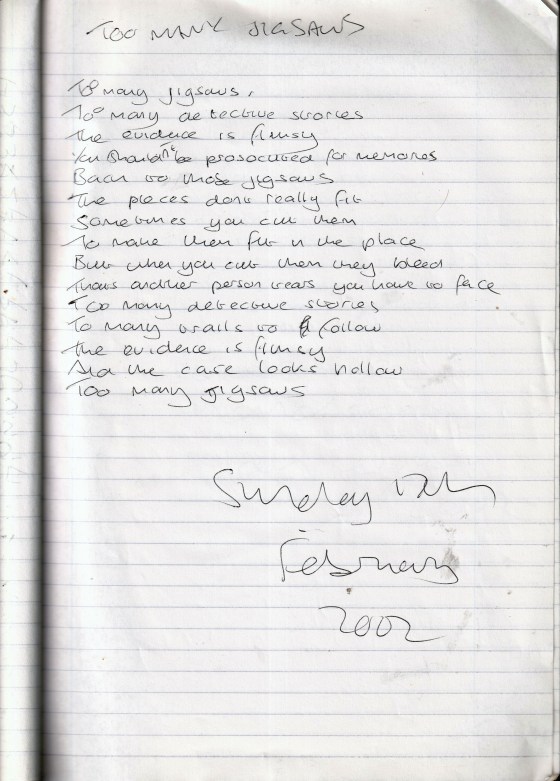 TOO MANY JIGSAWS
Too many jigsaws,
Too many detective stories
the evidence is flimsy
You shouldn't be prosocuted for memories
Back to those jigsaws
The pieces dont really fit
Sometimes you cut them
To make them fit in the place
But when you cut them they bleed
Thats another person tears you have to face
Too many detective stories
To many trails to follow
The evidence is flimsy
And the case looks hollow
Too many jigsaws
Sunday
February
2002